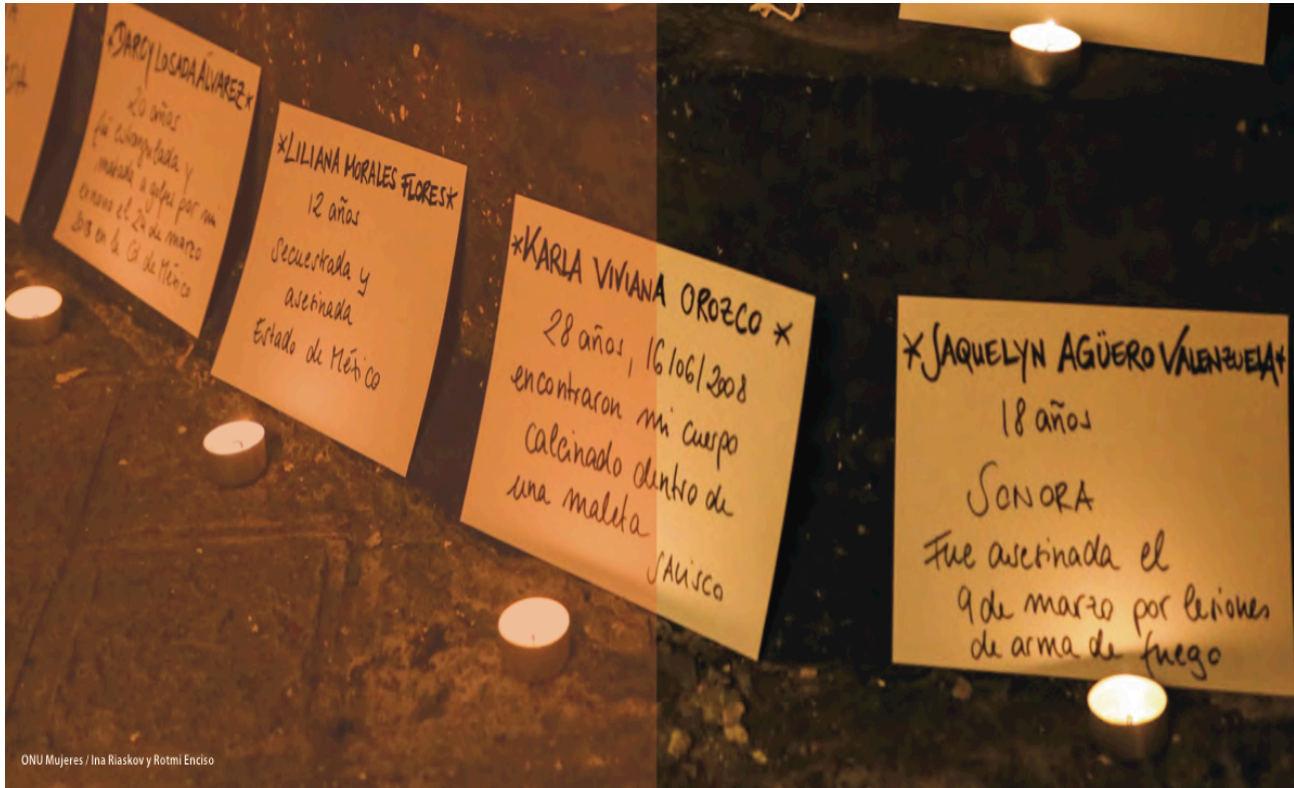 *DARCY LOSADA ÁLVAREZ*
20 años
fui estrangulada y
matada a golpes por mi
el 24 de marzo
en la Cd de México
*LILIANA MORALES FLORES*
12 años
secuestrada y
asesinada
Estado de México
*KARLA VIVIANA OROZCO*
28 años, 16/06/2008
encontraron mi cuerpo
calcinado dentro de
una maleta
JALISCO
*JAQUELYN AGÜERO VALENZUELA*
18 años
SONORA
Fue asesinada el
9 de marzo por lesiones
de arma de fuego
ONU Mujeres / Ina Riaskov y Rotmi Enciso